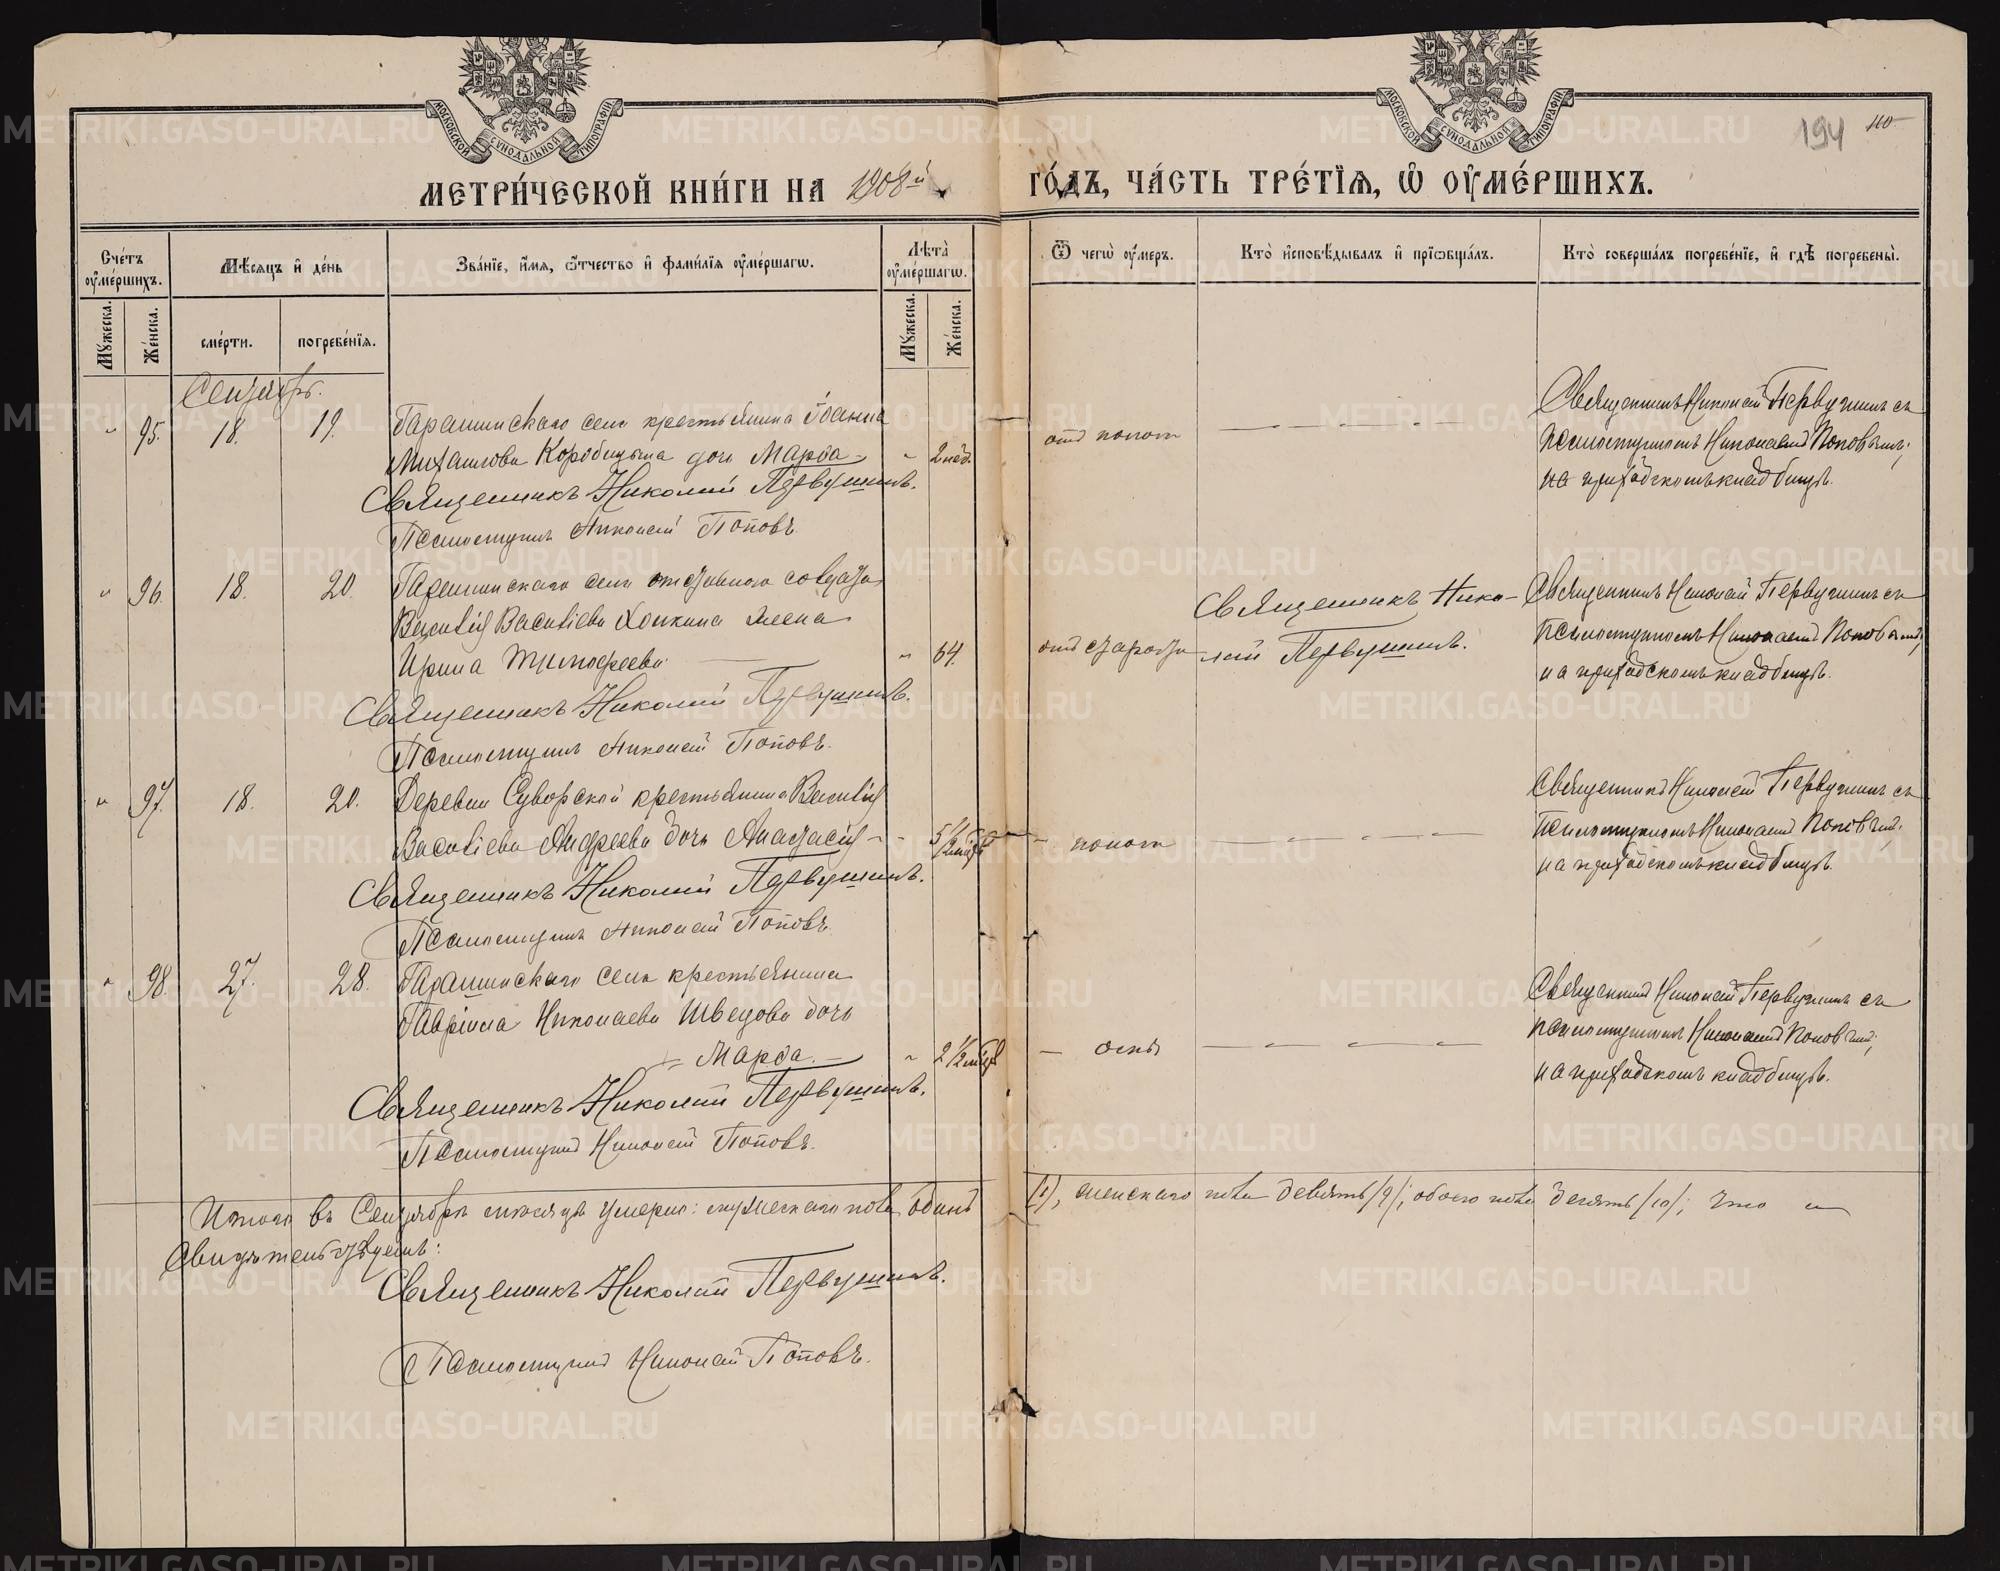 МОСКОВСКОЙ СУНОДАЛЬНОЙ ТИПОГРАФІИ
МОСКОВСКОЙ СУНОДАЛЬНОЙ ТИПОГРАФІИ
194
110
МЕТРИ́ЧЕСКОЙ КНИ́ГИ НА 1908й
ГО́ДЪ, ЧА́СТЬ ТРЕ́ТІѦ, Ѡ҆ ОУ҆МЕ́РШИХЪ.
Сче́тъ оу҆ме́ршихъ.
Мꙋ́жеска.
Же́нска.
Мѣ́сѧцъ и҆ де́нь
сме́рти.
погребе́нїѧ.
Зва́нїе, и҆́мѧ, ѻ҆́тчество и҆ фами́лїѧ оу҆ме́ршагѡ.
Лѣ́та оу҆ме́ршагѡ.
Мꙋ́жеска.
Же́нска.
Ѿ чегѡ̀ оу҆́меръ.
Кто̀ и҆сповѣ́дывалъ и҆ прїѡбща́лъ.
Кто̀ соверша́лъ погребе́нїе, и҆ гдѣ̀ погребены̀.
Сентябрь.
" 95. 18. 19. Гарашинскаго села крестьянина Іоанна
Михаилова Коробицына дочь Марѳа " 2 нед. отъ поноса
Священникъ Николай Первушинъ.
Псаломщикъ Николай Поповъ.
Священникъ Николай Первушинъ съ
псаломщикомъ Николаемъ Поповымъ;
на приходскомъ кладбищѣ.
" 96. 18. 20. Гарашинскаго села отставного солдата
Василія Васильева жена
Ирина Тимофеева " 64. отъ старости
Священникъ Николай Первушинъ.
Псаломщикъ Николай Поповъ.
Священникъ Нико-
лай Первушинъ.
Священникъ Николай Первушинъ съ
псаломщикомъ Николаемъ Поповымъ;
на приходскомъ кладбищѣ.
" 97. 18. 20. Деревни Суворской крестьянина Василія
Васильева Андреева дочь Анастасія " 5 1/2 мѣс. - поноса
Священникъ Николай Первушинъ.
Псаломщикъ Николай Поповъ.
Священникъ Николай Первушинъ съ
псаломщикомъ Николаемъ Поповымъ;
на приходскомъ кладбищѣ.
" 98. 27. 28. Гарашинскаго села крестьянина
Гавріила Николаева Шведова дочь
Марѳа " 2 1/2 - оспы
Священникъ Николай Первушинъ.
Псаломщикъ Николай Поповъ.
Священникъ Николай Первушинъ съ
псаломщикомъ Николаемъ Поповымъ;
на приходскомъ кладбищѣ.
Итого въ Сентябрѣ мѣсяцѣ умерло: мужескаго пола одинъ
(1), женскаго пола девять (9); обоего пола десять (10); что и
Свидѣтельствуемъ:
Священникъ Николай Первушинъ.
Псаломщикъ Николай Поповъ.
METRIKI.GASO-URAL.RU